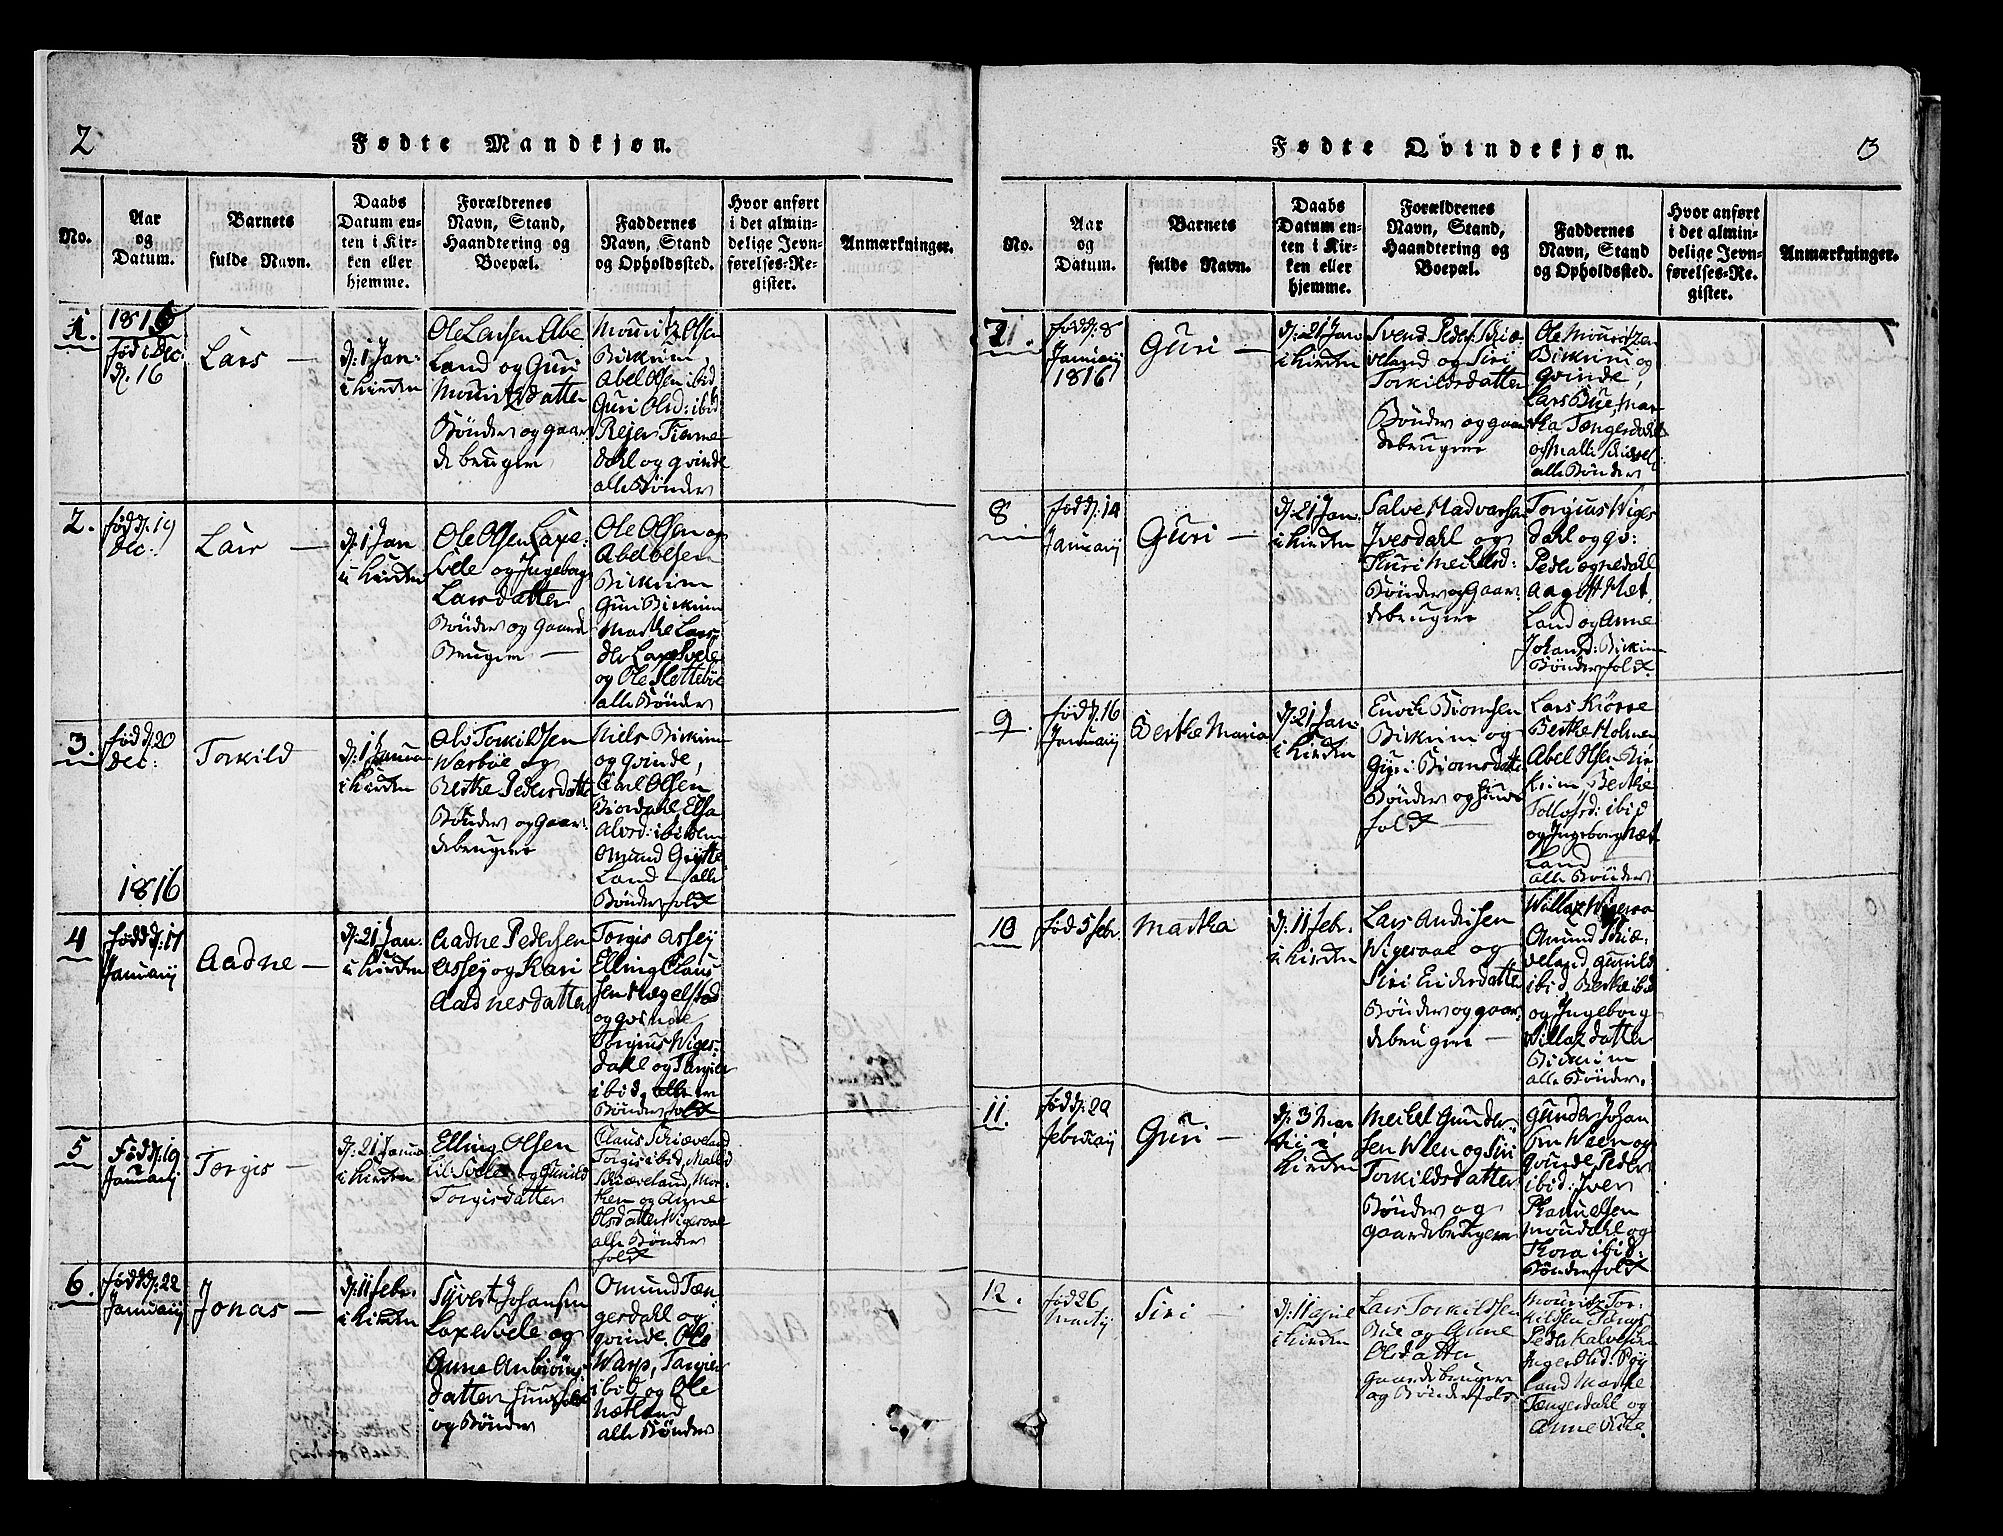 2
Fødte Mandkjøn.
No.
Aar
og
Datum.
Barnets
fulde Navn.
Daabs
Datum en-
ten i Kir-
ken eller
hjemme.
Forældrenes
Navn, Stand,
Haandtering og
Boepæl.
Faddernes
Navn, Stand
og Opholdssted.
Hvor anført
i det almin-
delige Jevn-
førelses-Re-
gister.
Anmærkninger.
1.
1816
født i Dec:
d. 16
Lars
d: 1 Jan:
i kirken
Ole Larsen Abe
Land og Guri
Mouritzdatter
Bönder og gaar
debruger
Mouritz Olsen
Birkrim,
Abel Olsen ibid
Guri Olsd: ibid
Rejer
dahl og qvinde
alle Bönder
2.
fød d: 19
Dec:
Lars
d: 1 Jan
i kirken
Ole Olsen Laxe-
svele og Ingeborg
Larsdatter
Bönder og Gaard
Bruger
Ole Olsen og
Abel Olsen
Birkrim
Guri Birkrim
Marthe Lars-
dtr Laxesvele
og Ole Slettebøe
alle Bönder
3.
fød d: 20
Dec:
Torkild
d: 1 Janua
i kirken
Ole Torkildsen
Warbøe og
Berthe Pedersdatte
Bönder og Gaar
debruger
Niels Birkrim
og qvinde,
Carl Olsen
Biordahl Elsa
Alvsd: ibidem
Omund Grÿtte
Land alle
Bönderfolk
1816
4
fød d: 17
Januarij
Aadne
d: 21 Jan.
i kirken
Aadne Pedersen
Assey og Kari
Aadnesdatter
Torgis Assey
Elling Claus
sen Hægelstad
og qvinde
Torgius Wiges-
dahl og
ibid, alle
Bönderfolk
5
Fød d: 19
Januarij
Torgis
d: 21 Janua
i kirken
Elling Olsen
Lil Svele og Gunild
Torgisdatter
Claus Skiæveland
Torgis ibid,
Skiæveland, Mor-
then og Anne
Olsdatter Wigesaae
alle Bönder
folk
6.
fød d: 22
Januarij
Jonas
d: 11 febr.
i kirken
Syvert Johansen
Laxesvele og
Anne Anbiörns
datter huusfolk
og Bönder
Omund Tæn
gesdahl og
qvinde. Ole
Warp,
ibid og Ole
Nætland
alle Bönder
3
Fødte Qvindekjøn.
No.
Aar
og
Datum.
Barnets
fulde Navn.
Daabs
Datum en-
ten i Kir-
ken eller
hjemme.
Forældrenes
Navn, Stand,
Haandtering og
Boepæl.
Faddernes
Navn, Stand
og Opholdssted.
Hvor anført
i det almin-
delige Jevn-
førelses-Re-
gister.
Anmærkninger.
7.
fød d: 8
Januarij
1816
Guri
d: 21 Jan
i kirken
Svend Peders: Skiæ-
veland og Siri
Torkildsdatter
Bönder og gaar
debruger
Ole Mouritzen
Birkrim og
qvinde,
Lars Bue, Mar
tha Tengesdahl
og Malli
alle Bönder
8
fød d: 14
Januarij
Guri
d: 21 Jan.
i kirken
Salve Hadvarsen
Ivesdahl og
Thuri Meikelsd:
Bönder og Gaar-
debruger
Torgius Wiges
dahl og qv:
Peder Ognedahl
Aagott Næt
Land og Anne
Johansd: Birkrim
Bönderfolk
9.
fød d: 16
Januarij
Berthe Maria
d: 21 Jan:
i kirken
Envik Biornsen
Birkrim og
Guri Biornsdatte
Bönder og huus
folk
Lars Kiörre
Berthe Holmen
Abel Olsen Bir
krim, Berthe
Tollofsd: ibid
og Ingeborg Næt
Land
alle Bönder
10
fød 5 febr.
Martha
d: 11 febr.
i kirken
Lars Andersen
Wigesaae og
Siri Ericksdatter
Bönder og gaar-
debruger
Willaz Wigesaa
Omund Skiæ-
veland Gunild
ibid, Berthe ibid
og Ingeborg
Willazdatter
Birkrim
alle Bönder.
11.
fød d: 29
februarij
Guri
d: 3 Mar
tii i
kirken
Meikel Gunder-
sen Ween og Siri
Torkildsdatter
Bönder og
gaardebruger
Gunder Johan
sen Ween og
qvinde Peder
ibid: Iver
Samuelsen
Moudahl og
Thora ibid:
Bönderfolk
12.
fød 26
Martij
Siri
d: 11 april
i kirken
Lars Torkildsen
Bue og Anne
Olsdatter
Gaardebruger
og Bönderfolk
Mouritz Tor-
kildsen
Peder
Inger Olsd:
land Marthe
Tengesdahl og
Anne Bue.